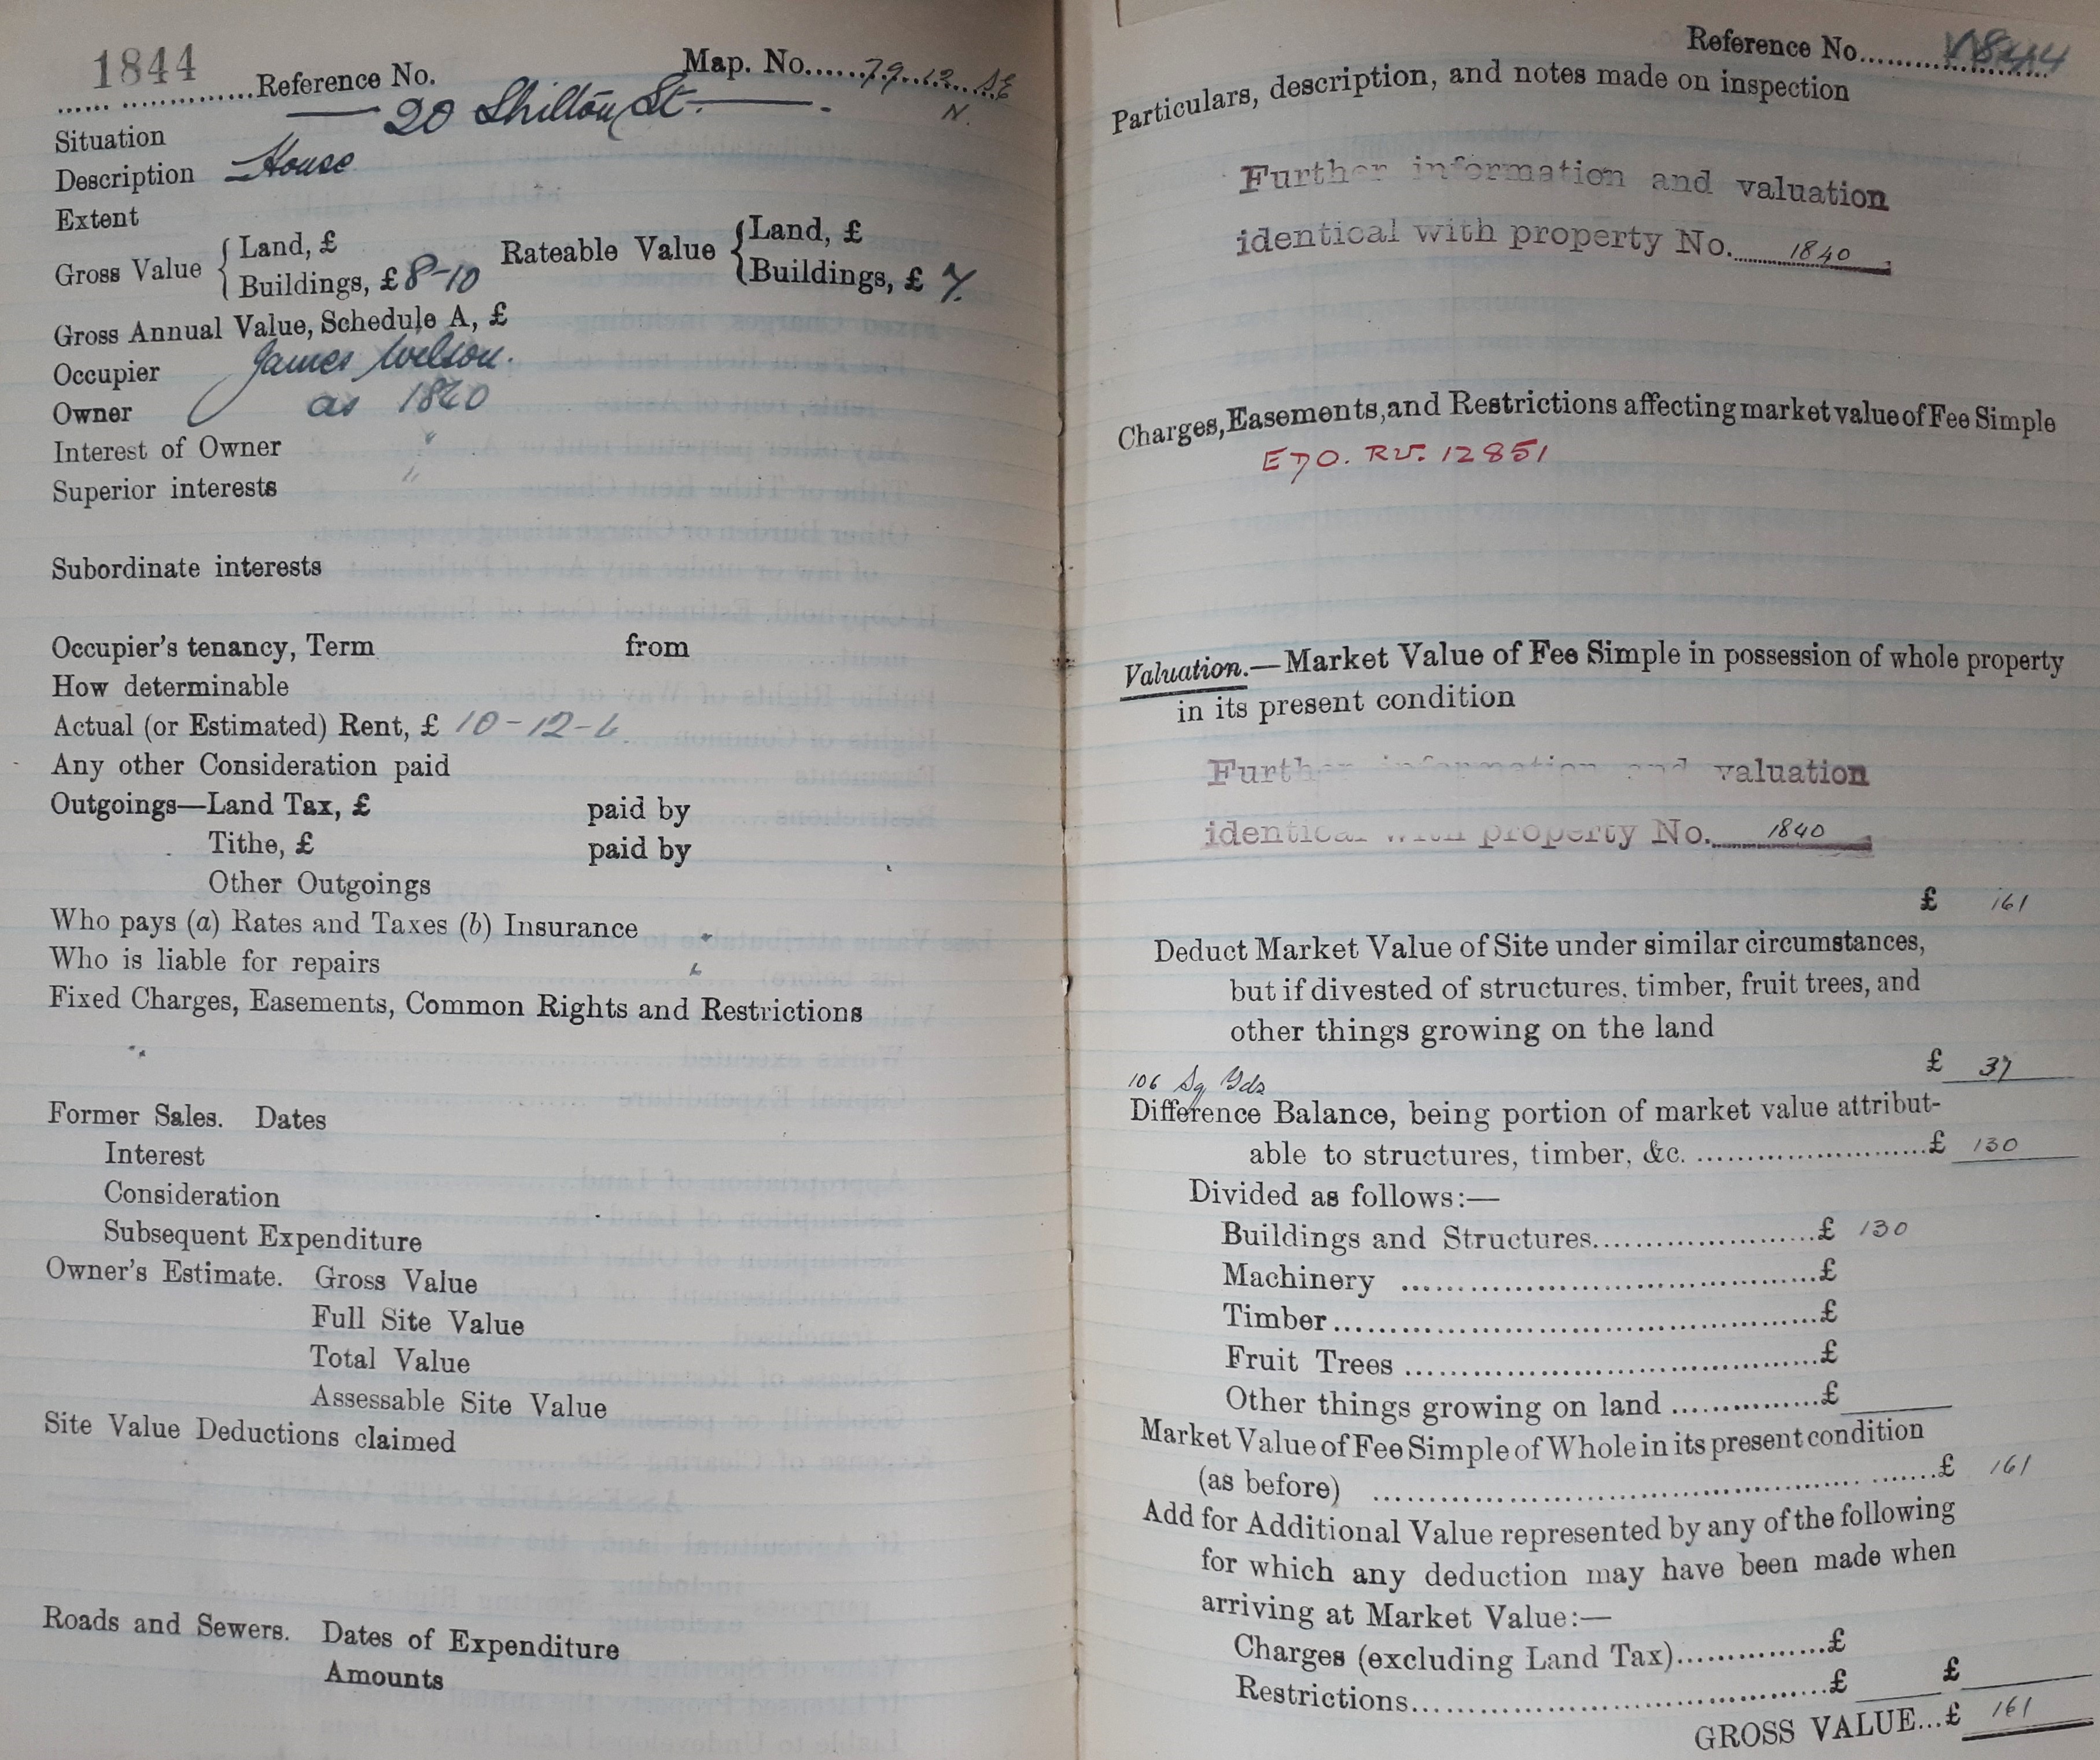 1844
Reference No. Map. No. 79.13. SE
N.
Situation 20 Shilton St.
Description House
Extent
Gross Value { Land, £ Rateable Value { Land, £
Buildings, £ 8-10 Buildings, £ 7.
Gross Annual Value, Schedule A, £
Occupier James Wilson.
Owner as 1840
Interest of Owner "
Superior interests "
Subordinate interests
Occupier's tenancy, Term from
How determinable
Actual (or Estimated) Rent, £ 10-12-6
Any other Consideration paid
Outgoings—Land Tax, £ paid by
Tithe, £ paid by
Other Outgoings
Who pays (a) Rates and Taxes (b) Insurance
Who is liable for repairs
Fixed Charges, Easements, Common Rights and Restrictions
Former Sales. Dates
Interest
Consideration
Subsequent Expenditure
Owner's Estimate. Gross Value
Full Site Value
Total Value
Assessable Site Value
Site Value Deductions claimed
Roads and Sewers. Dates of Expenditure
Amounts
Reference No. 1844
Particulars, description, and notes made on inspection
Further information and valuation
identical with property No. 1840
Charges, Easements, and Restrictions affecting market value of Fee Simple
E7O. RV. 12851
Valuation.—Market Value of Fee Simple in possession of whole property
in its present condition
Further information and valuation
identical with property No. 1840
£ 161
Deduct Market Value of Site under similar circumstances,
but if divested of structures, timber, fruit trees, and
other things growing on the land
£ 31
106 Sq Yds
Difference Balance, being portion of market value attribut-
able to structures, timber, &c. £ 130
Divided as follows:—
Buildings and Structures £ 130
Machinery £
Timber £
Fruit Trees £
Other things growing on land £
Market Value of Fee Simple of Whole in its present condition
(as before) £ 161
Add for Additional Value represented by any of the following
for which any deduction may have been made when
arriving at Market Value:—
Charges (excluding Land Tax) £
Restrictions £ £
GROSS VALUE...£ 161